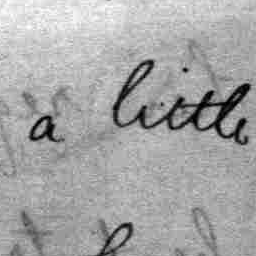 a little